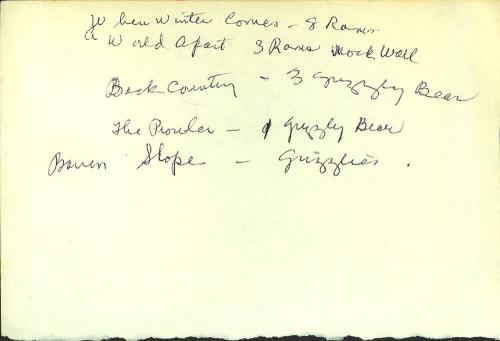 When Winter Comes - 8 Rams.
A World Apart 3 Rams Rock Wall
Back Country - 3 Grizzly Bear
The Prowler - 1 Grizzly Bear
Barren Slope - Grizzlies.